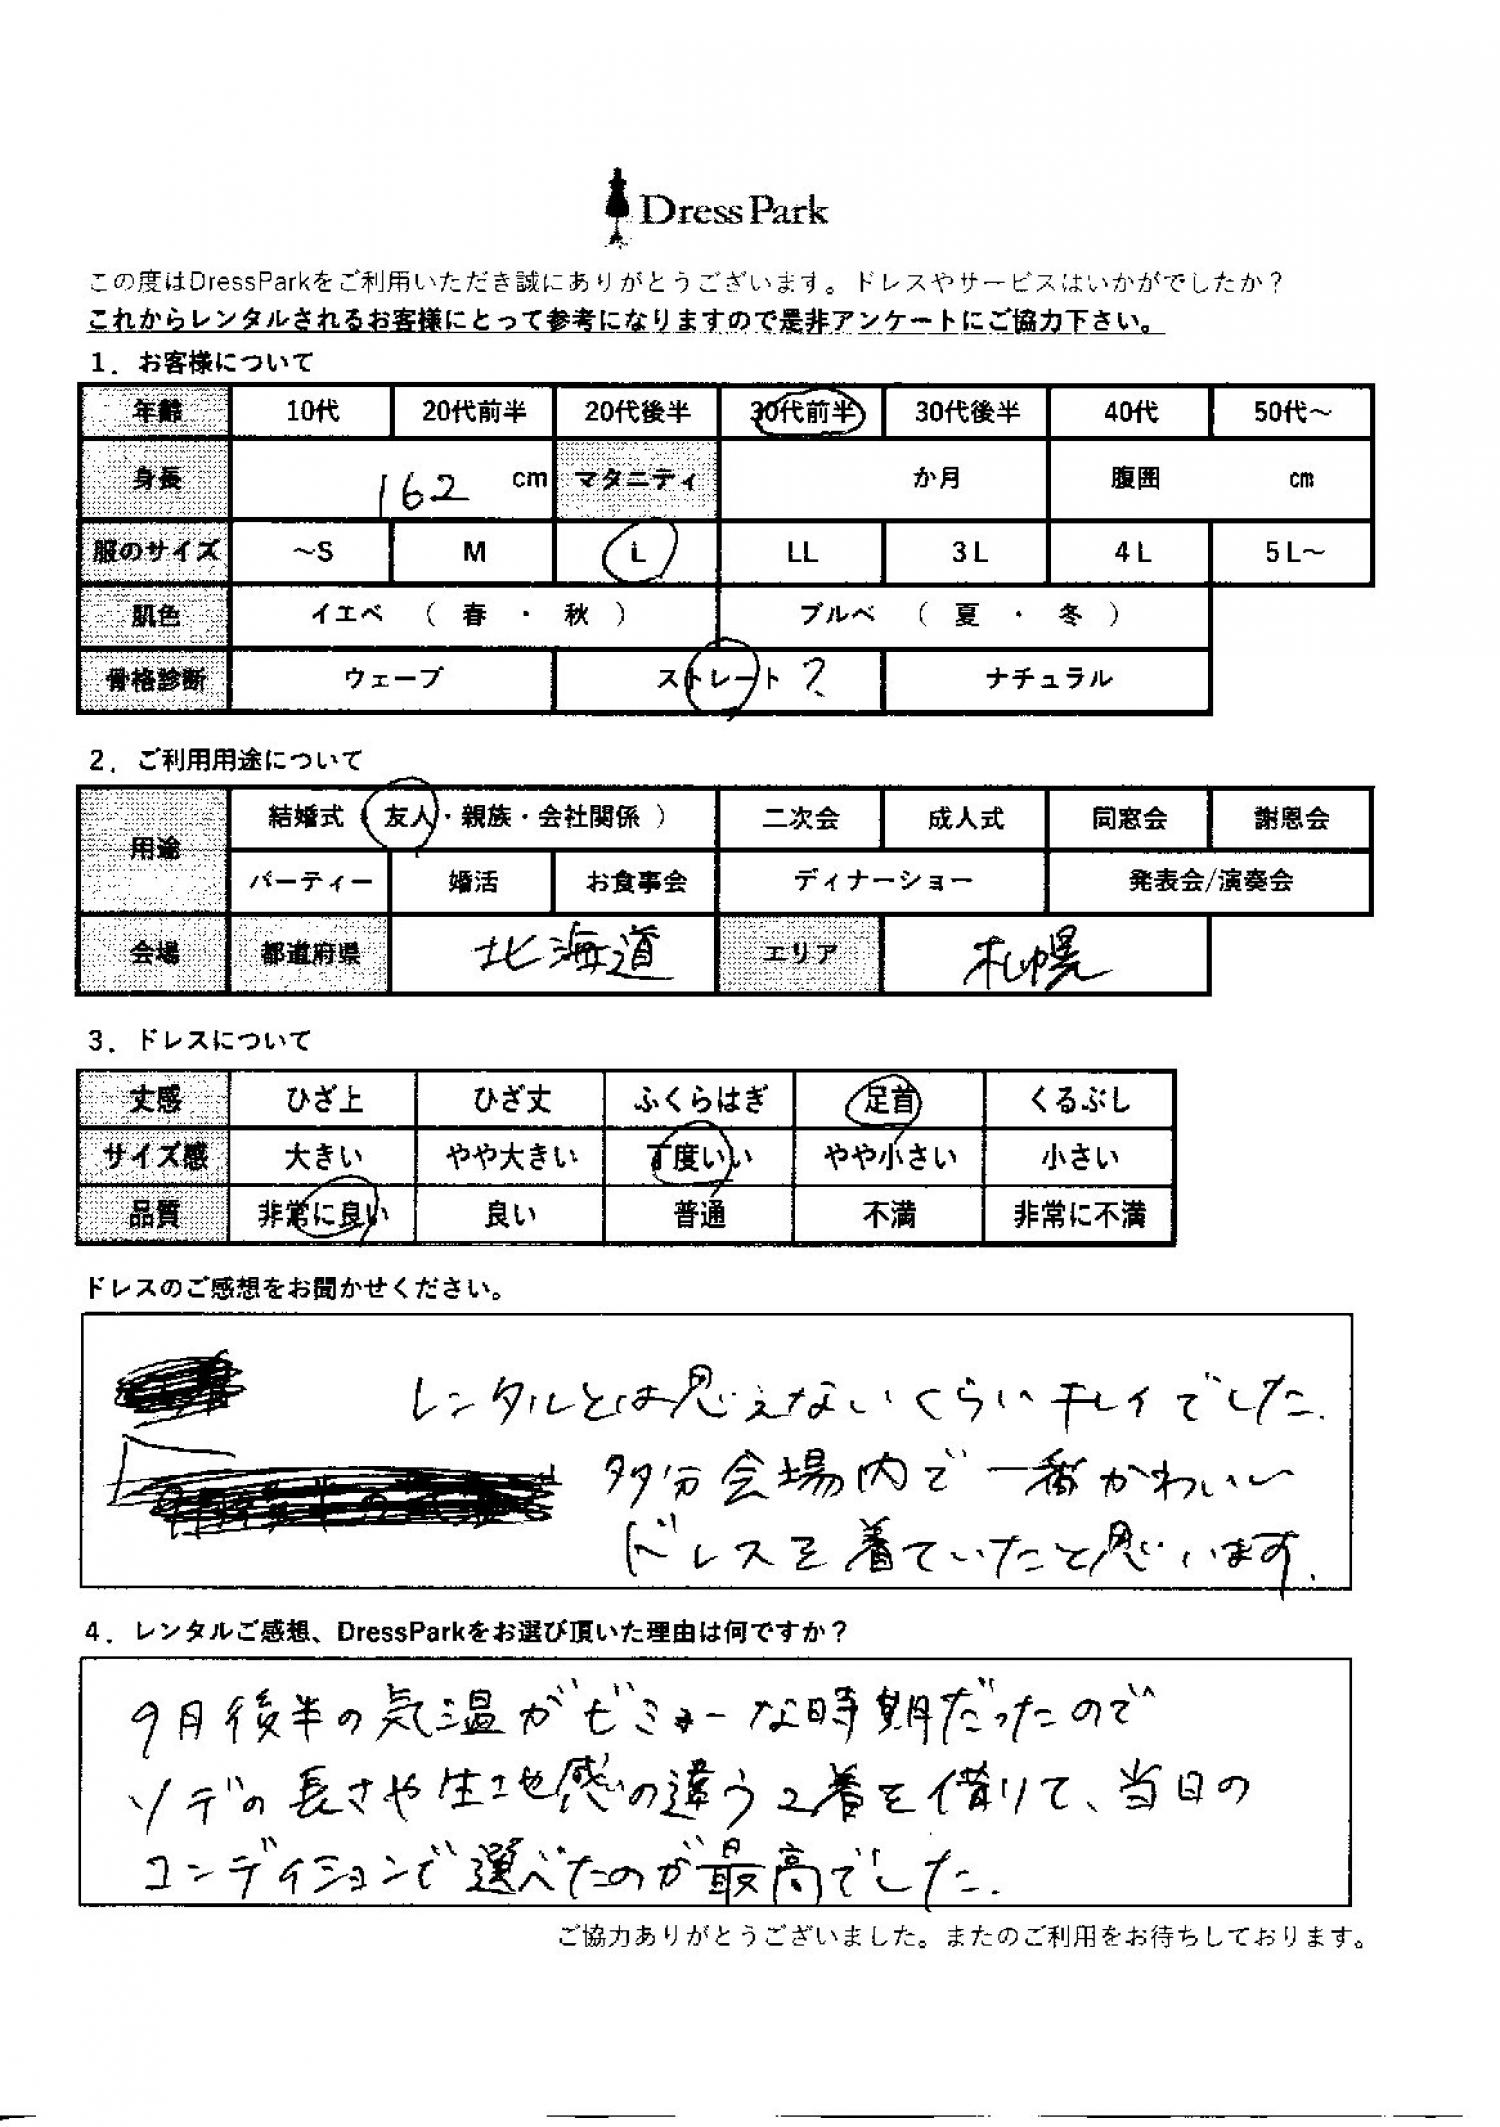 Dress Park
この度はDressParkをご利用いただき誠にありがとうございます。ドレスやサービスはいかがでしたか？
これからレンタルされるお客様にとって参考になりますので是非アンケートにご協力下さい。
1．お客様について
年齢 10代 20代前半 20代後半 30代前半 30代後半 40代 50代～
身長 162 cm マタニティ か月 腹囲 cm
服のサイズ ～S M L LL 3L 4L 5L～
肌色 イエベ （ 春 ・ 秋 ） ブルベ （ 夏 ・ 冬 ）
骨格診断 ウェーブ ストレート ？ ナチュラル
2．ご利用用途について
用途 結婚式（ 友人・親族・会社関係 ） 二次会 成人式 同窓会 謝恩会
パーティー 婚活 お食事会 ディナーショー 発表会/演奏会
会場 都道府県 北海道 エリア 札幌
3．ドレスについて
丈感 ひざ上 ひざ丈 ふくらはぎ 足首 くるぶし
サイズ感 大きい やや大きい 丁度いい やや小さい 小さい
品質 非常に良い 良い 普通 不満 非常に不満
ドレスのご感想をお聞かせください。
レンタルとは思えないくらいキレイでした.
多分会場内で一番かわいい
ドレスを着ていたと思います.
4．レンタルご感想、DressParkをお選び頂いた理由は何ですか？
9月後半の気温がビミョーな時期だったので
ソデの長さや生地感の違う2着を借りて、当日の
コンディションで選べたのが最高でした.
ご協力ありがとうございました。またのご利用をお待ちしております。